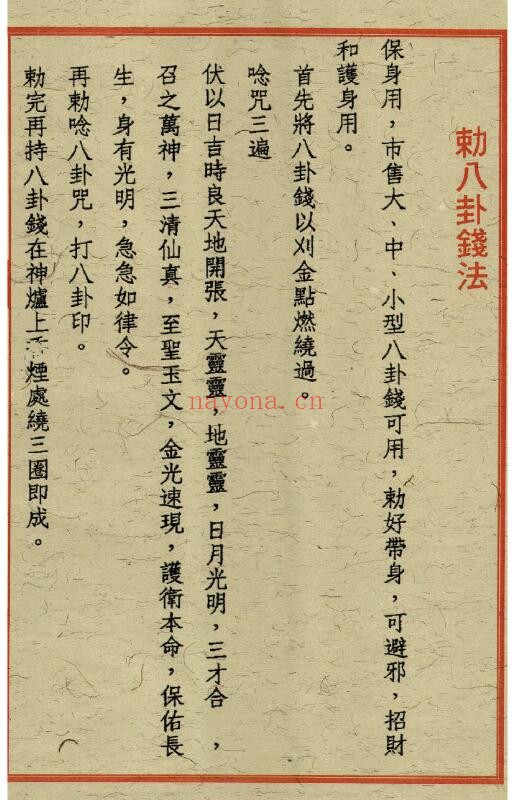 勅八卦錢法
保身用，市售大、中、小型八卦錢可用，勅好帶身，可避邪，招財
和護身用。
首先將八卦錢以刈金點燃繞過。
唸咒三遍
伏以日吉時良天地開張，天靈靈，地靈靈，日月光明，三才合　，
召之萬神，三清仙真，至聖玉文，金光速現，護衛本命，保佑長
生，身有光明，急急如律令。
再勅唸八卦咒，打八卦印。
勅完再持八卦錢在神爐上香煙處繞三圈即成。
nayona.cn